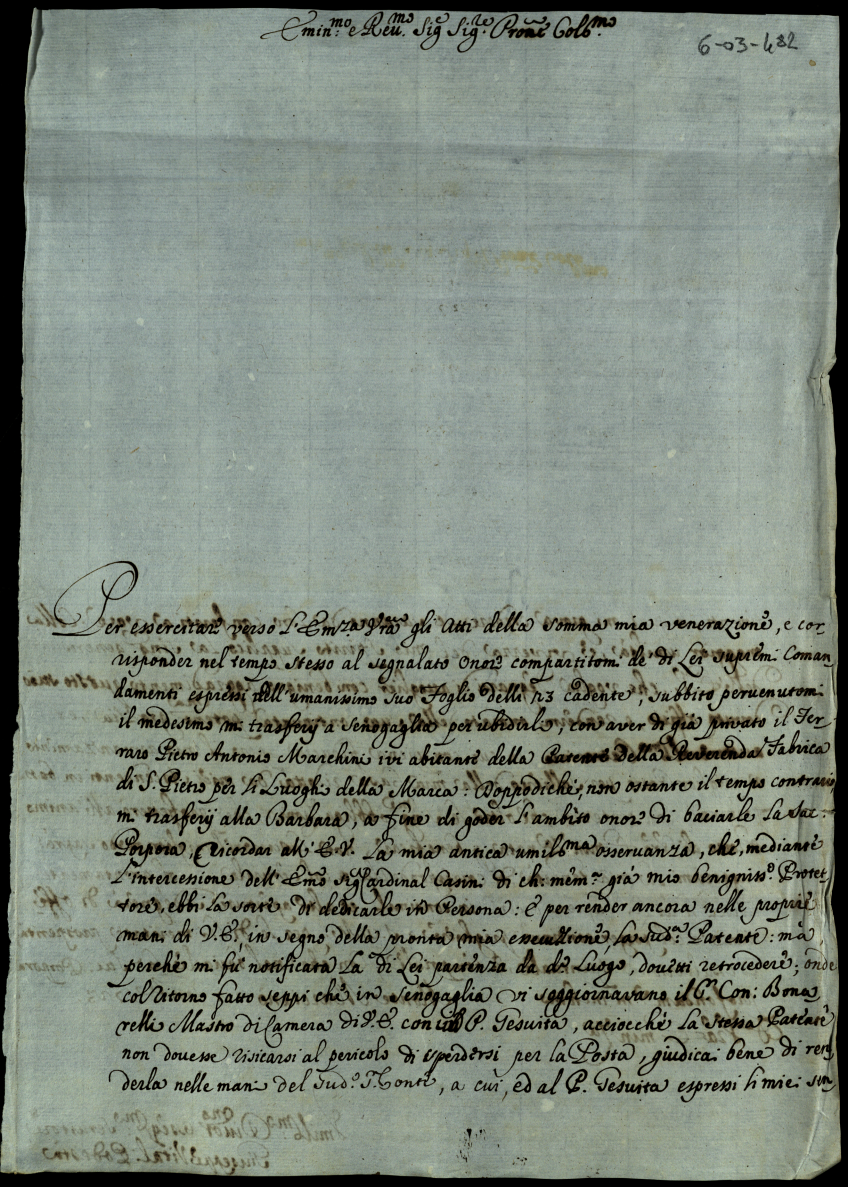 Emin.mo e Reu.mo Sig.e Sig.re Prone Colb.mo
6-03-482
Per essercitare verso L'Emza Vra gli Atti della somma mia venerazione, e cor-
risponder nel tempo stesso al segnalato onore compartitomi de' di Lei supremi Coman-
damenti espressi dell'umanissimo suo Foglio delli 23 cadente, subbito pervenutomi
il medesimo mi trasferij a Senogaglia per ubidirle, con aver di già privato il Fer-
raro Pietro Antonio Marchini ivi abitante della Patente della Reverenda Fabrica
di S. Pietro per li Luoghi della Marca: Doppodiché, non ostante il tempo contrario
mi trasferij alla Barbara, a fine di goder l'ambito onore di baciarle la Sac:
Porpora, e ricordar all'E.V. La mia antica umilb.ma osservanza, che, mediante
L'intercessione dell'Emo Sig. Cardinal Casini di ch: mem.a già mio benigniss.o Protet-
tore, ebbi la sorte di dedicarle in Persona: E per render ancora nelle proprie
mani di V.E. in segno della pronta mia essecuzione la sud.a Patente: mà
perche mi fù notificata La di Lei partenza da do Luogo, dovetti retrocedere; onde
col Ritorno fatto seppi che in Senogaglia vi soggiornavano il G.r Con: Bona
relli Mastro di Camera di V.E. con un P. Gesuita, acciocché La stessa Patente
non dovesse risicarsi al pericolo di sperdersi per la Posta, giudicai bene di ren-
derla nelle mani del Sud.o Conte, a cui, ed al P. Gesuita espressi li miei sin